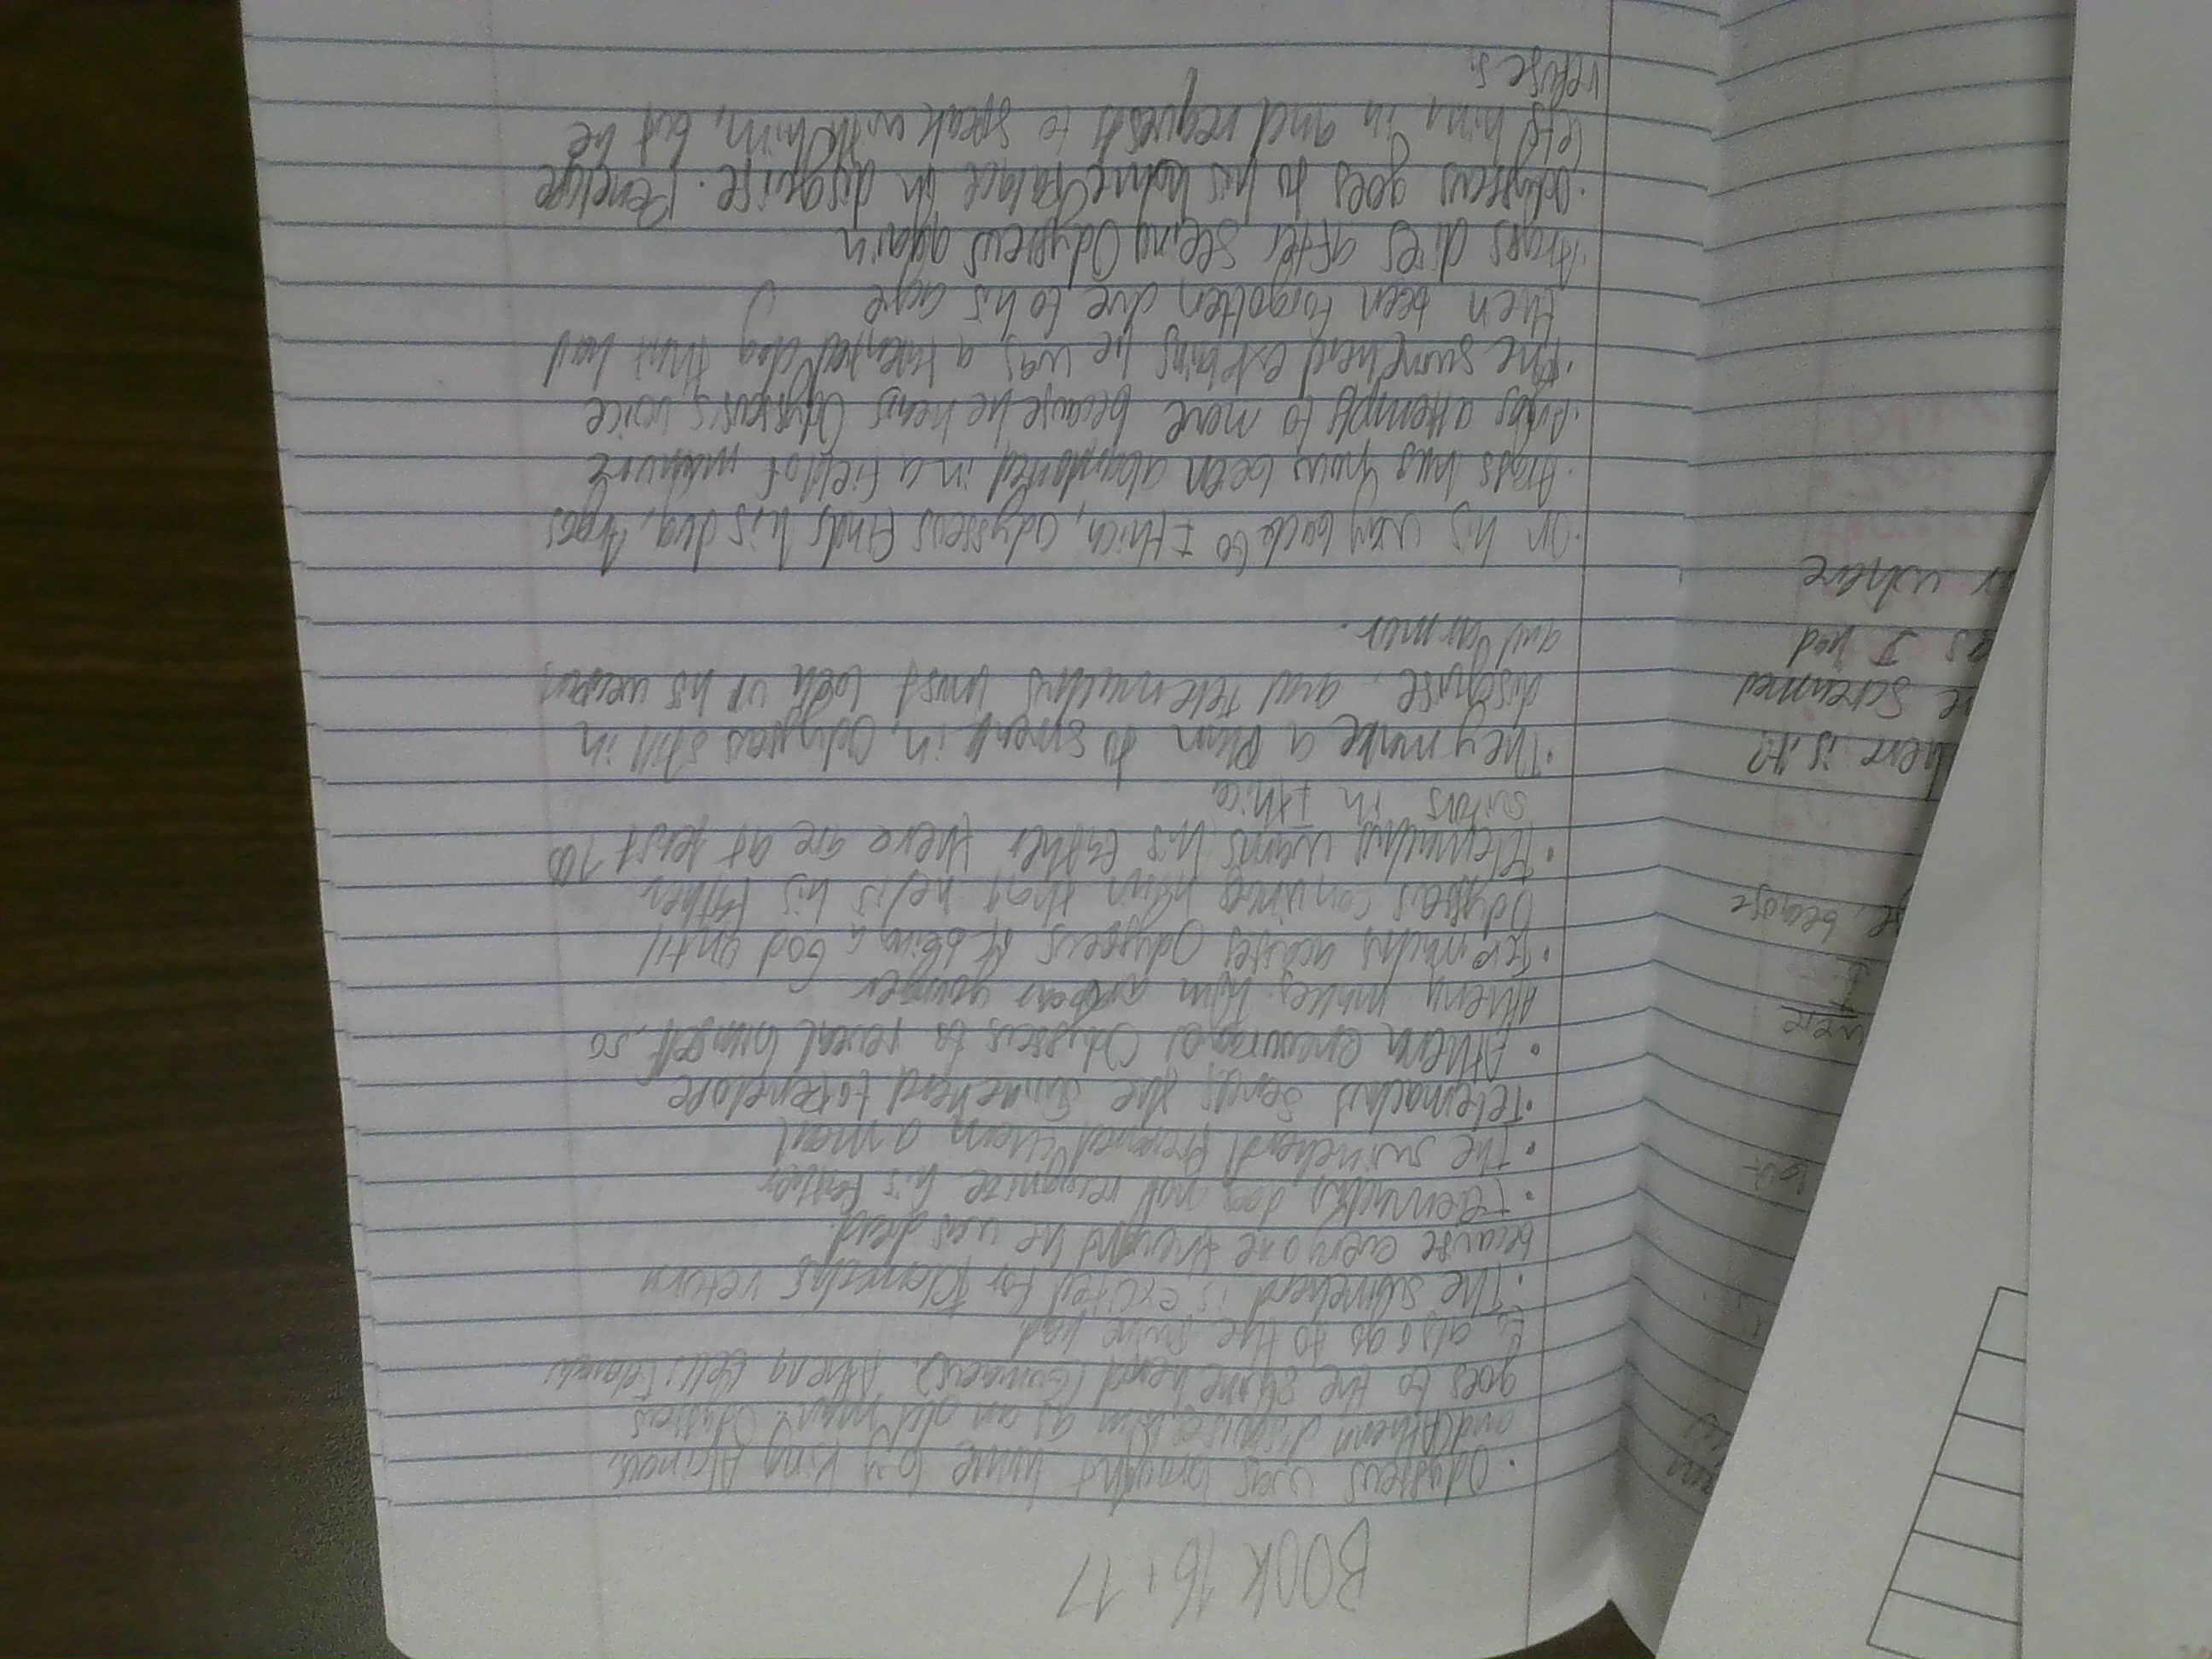 BOOK 16 + 17
• Odysseus was brought home by King Alcinous,
and Athena disguised him as an old man. Odysseus
goes to the swineherd (Eumaeus). Athena tells
to also go to the swine herd
• The swineherd is excited for return
because everyone thought he was dead.
• does not recognize his father
• The swineherd prepared them a meal
• Telemachus sends the swineherd to Penelope
• Athena encourages Odysseus to reveal himself, so
Athena makes him appear younger
• Odysseus of being a God until
Odysseus convince him that he is his father
• warns his father there are at least 100
suitors in Ithica
• They make a plan to sneak in, Odysseus still in
disguise, and Telemachus must lock up his weapons
and armor.
• On his way back to Ithica, Odysseus finds his dog, Argos
• Argos has now been abandoned in a field of manure
• Argos attempts to move because he hears Odysseus's voice
• The swineherd explains he was a talented dog that had
then been forgotten due to his age
• Argos dies after seeing Odysseus again
• Odysseus goes to his home Palace in disguise. Penelope
lets him in and requests to speak with him, but he
refuses.
were
because
here is it?
screamed
as I had
where